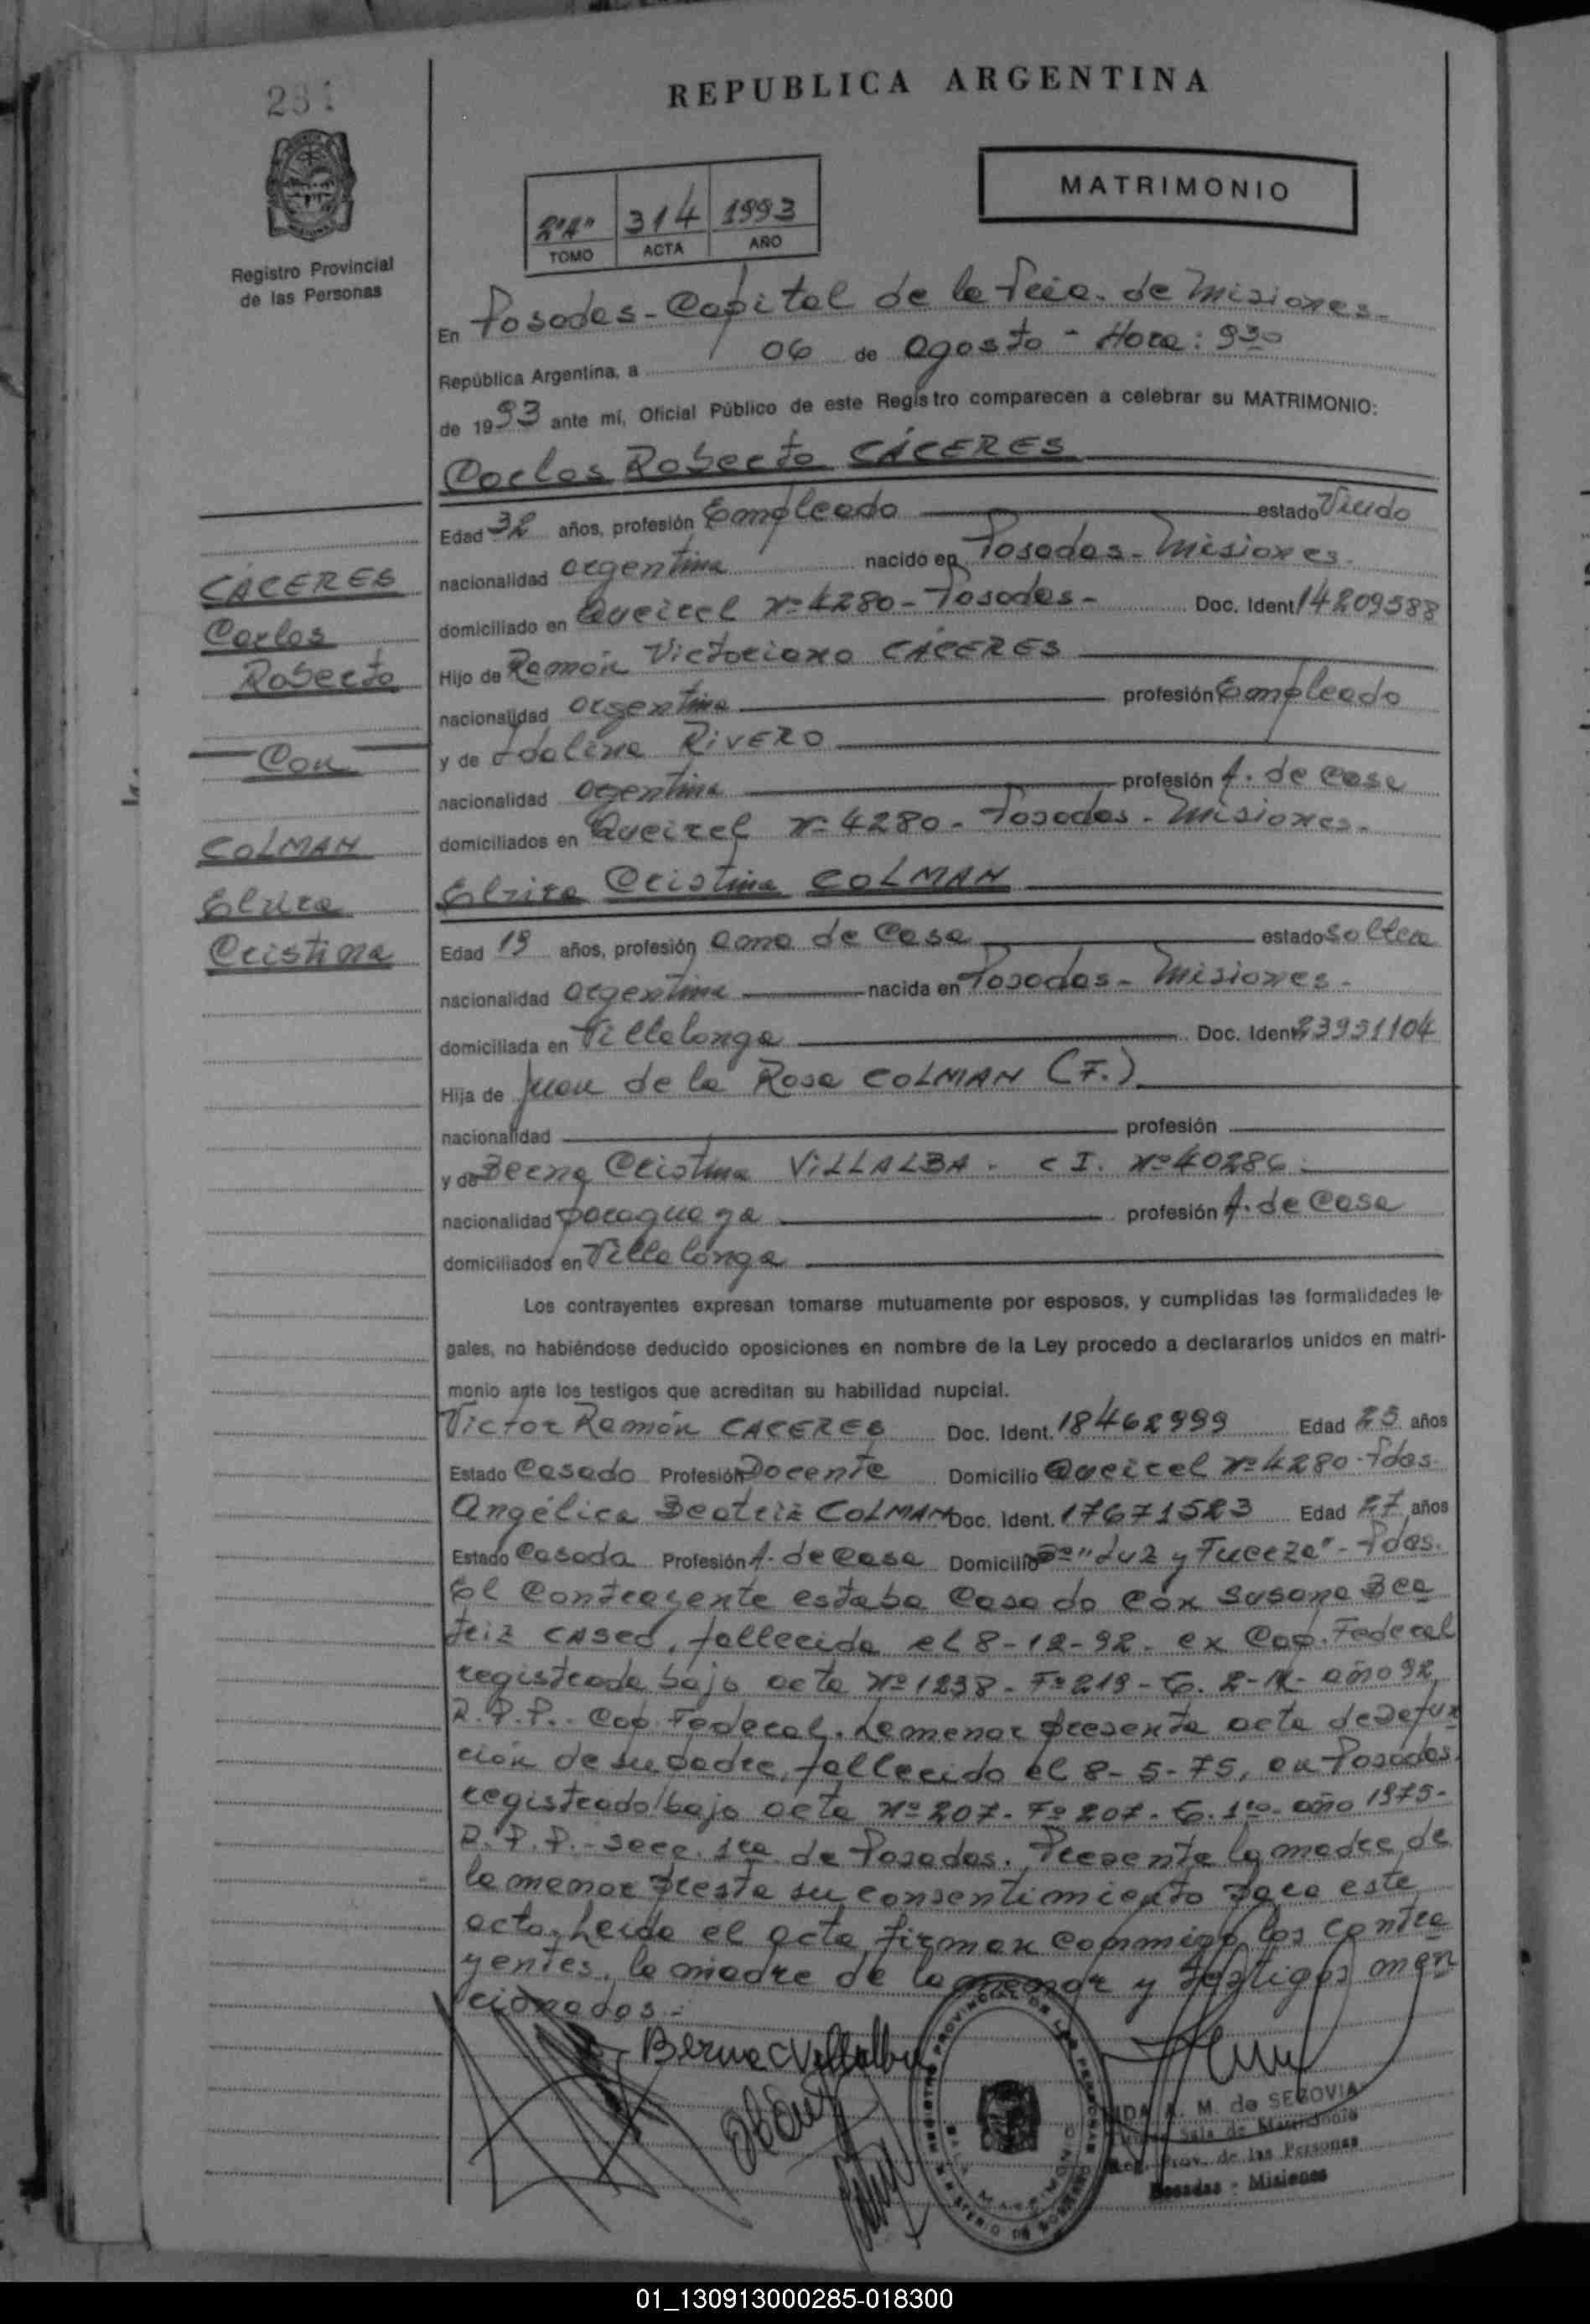 REPUBLICA ARGENTINA
MATRIMONIO
Registro Provincial
de las Personas
2º"A" 314 1993
TOMO ACTA AÑO
En Posadas - Capital de la Pcia. de Misiones -
República Argentina, a 06 de Agosto - Hora: 9 30
de 1993 ante mí, Oficial Público de este Registro comparecen a celebrar su MATRIMONIO:
Carlos Roberto CÁCERES
Edad 32 años, profesión Empleado estado Viudo
nacionalidad argentina nacido en Posadas - Misiones.
domiciliado en Queirel Nº 4280 - Posadas - Doc. Ident 14209588
Hijo de Ramón Victoriano CÁCERES
nacionalidad argentina profesión Empleado
y de Idalina RIVERO
nacionalidad argentina profesión A. de Casa
domiciliados en Queirel Nº 4280 - Posadas - Misiones -
CÁCERES
Carlos
Roberto
Con
COLMAN
Elzira
Cristina
Elzira Cristina COLMAN
Edad 19 años, profesión ama de Casa estado Soltera
nacionalidad argentina nacida en Posadas - Misiones -
domiciliada en Villalonga Doc. Ident 23951104
Hija de Juan de la Rosa COLMAN (F.)
nacionalidad profesión
y de Berna Cristina VILLALBA - C I. Nº 40286.
nacionalidad paraguaya profesión A. de Casa
domiciliados en Villalonga
Los contrayentes expresan tomarse mutuamente por esposos, y cumplidas las formalidades le-
gales, no habiéndose deducido oposiciones en nombre de la Ley procedo a declararlos unidos en matri-
monio ante los testigos que acreditan su habilidad nupcial.
Victor Ramón CACERES Doc. Ident. 18462999 Edad 25 años
Estado Casado Profesión Docente Domicilio Queirel Nº 4280 - Pdas.
Angélica Beatriz COLMAN Doc. Ident. 17671523 Edad 27 años
Estado Casada Profesión A. de Casa Domicilio Bº "Luz y Fuerza" - Pdas.
El Contrayente estaba Casado con Susana Bea
triz, fallecida el 8-12-92 - en Cap. Federal
registrada bajo acta Nº 1238 - Fº 219 - año 92
R.P.P. - Cap. Federal. La menor presenta acta de Defun
ción de su padre, fallecido el 8-5-75, en Posadas
registrado bajo acta Nº 207 - Fº 207 - Tº. 1ro - año 1975 -
R.P.P. - Secc. 1ra de Posadas. Presente la madre de
la menor presta su consentimiento para este
acto. Leída el acta, firman conmigo los contra
yentes, la madre de la menor y testigos men
cionados.-
Berna C Villalba
REGISTRO PROVINCIAL DE LAS PERSONAS
SALA MATRIMONIO
MINISTERIO DE GOBIERNO
A. M. de SEGOVIA
Sala de Matrimonio
Reg. Prov. de las Personas
Posadas - Misiones
01_130913000285-018300